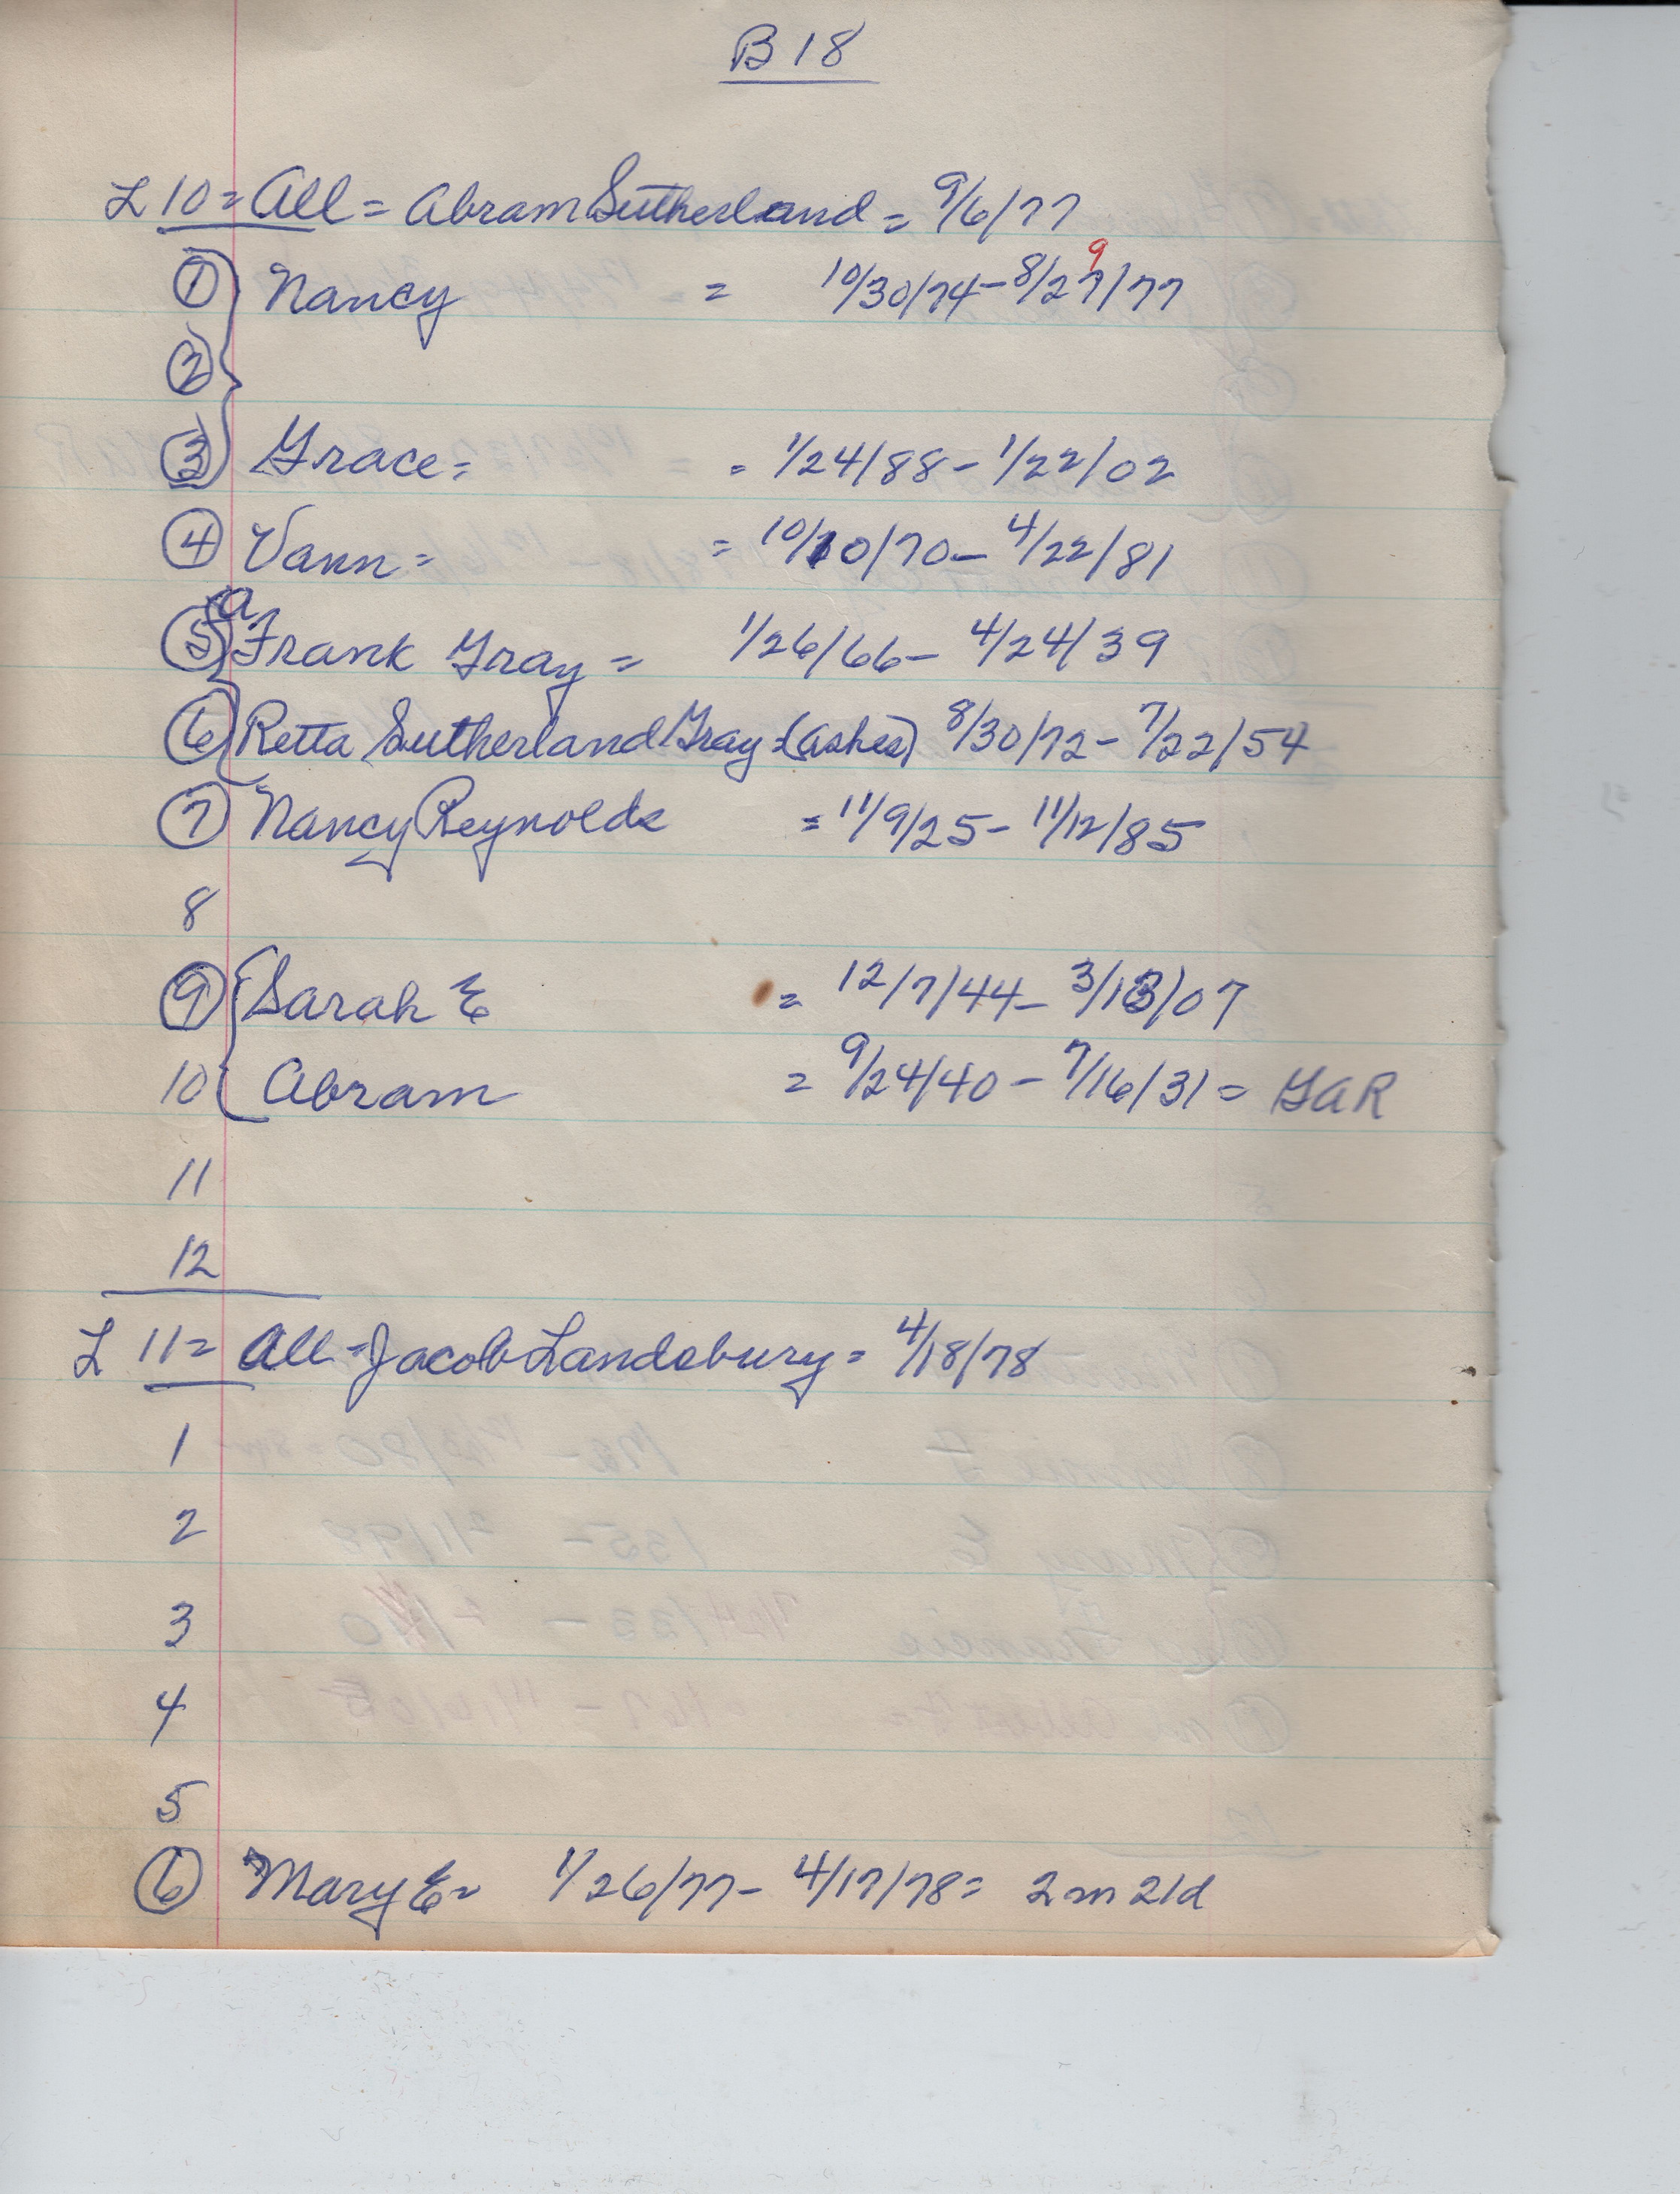 B 18
L 10 = All = Abram Sutherland = 9/6/77
1 Nancy = 10/30/74 - 8/27/77 9
2
3 Grace = = 1/24/88 - 1/22/02
4 Vann = = 10/10/70 - 4/22/81
a
5 Frank Gray = 1/26/66 - 4/24/39
6 Retta Sutherland Gray = (ashes) 8/30/72 - 7/22/54
7 Nancy Reynolds = 11/9/25 - 11/12/85
8
9 Sarah E = 12/7/44 - 3/13/07
10 Abram = 9/24/40 - 7/16/31 = GAR
11
12
L 11 = All = Jacob Landsbury = 4/18/78
1
2
3
4
5
6 Mary E = 1/26/77 - 4/17/78 = 2m 21d